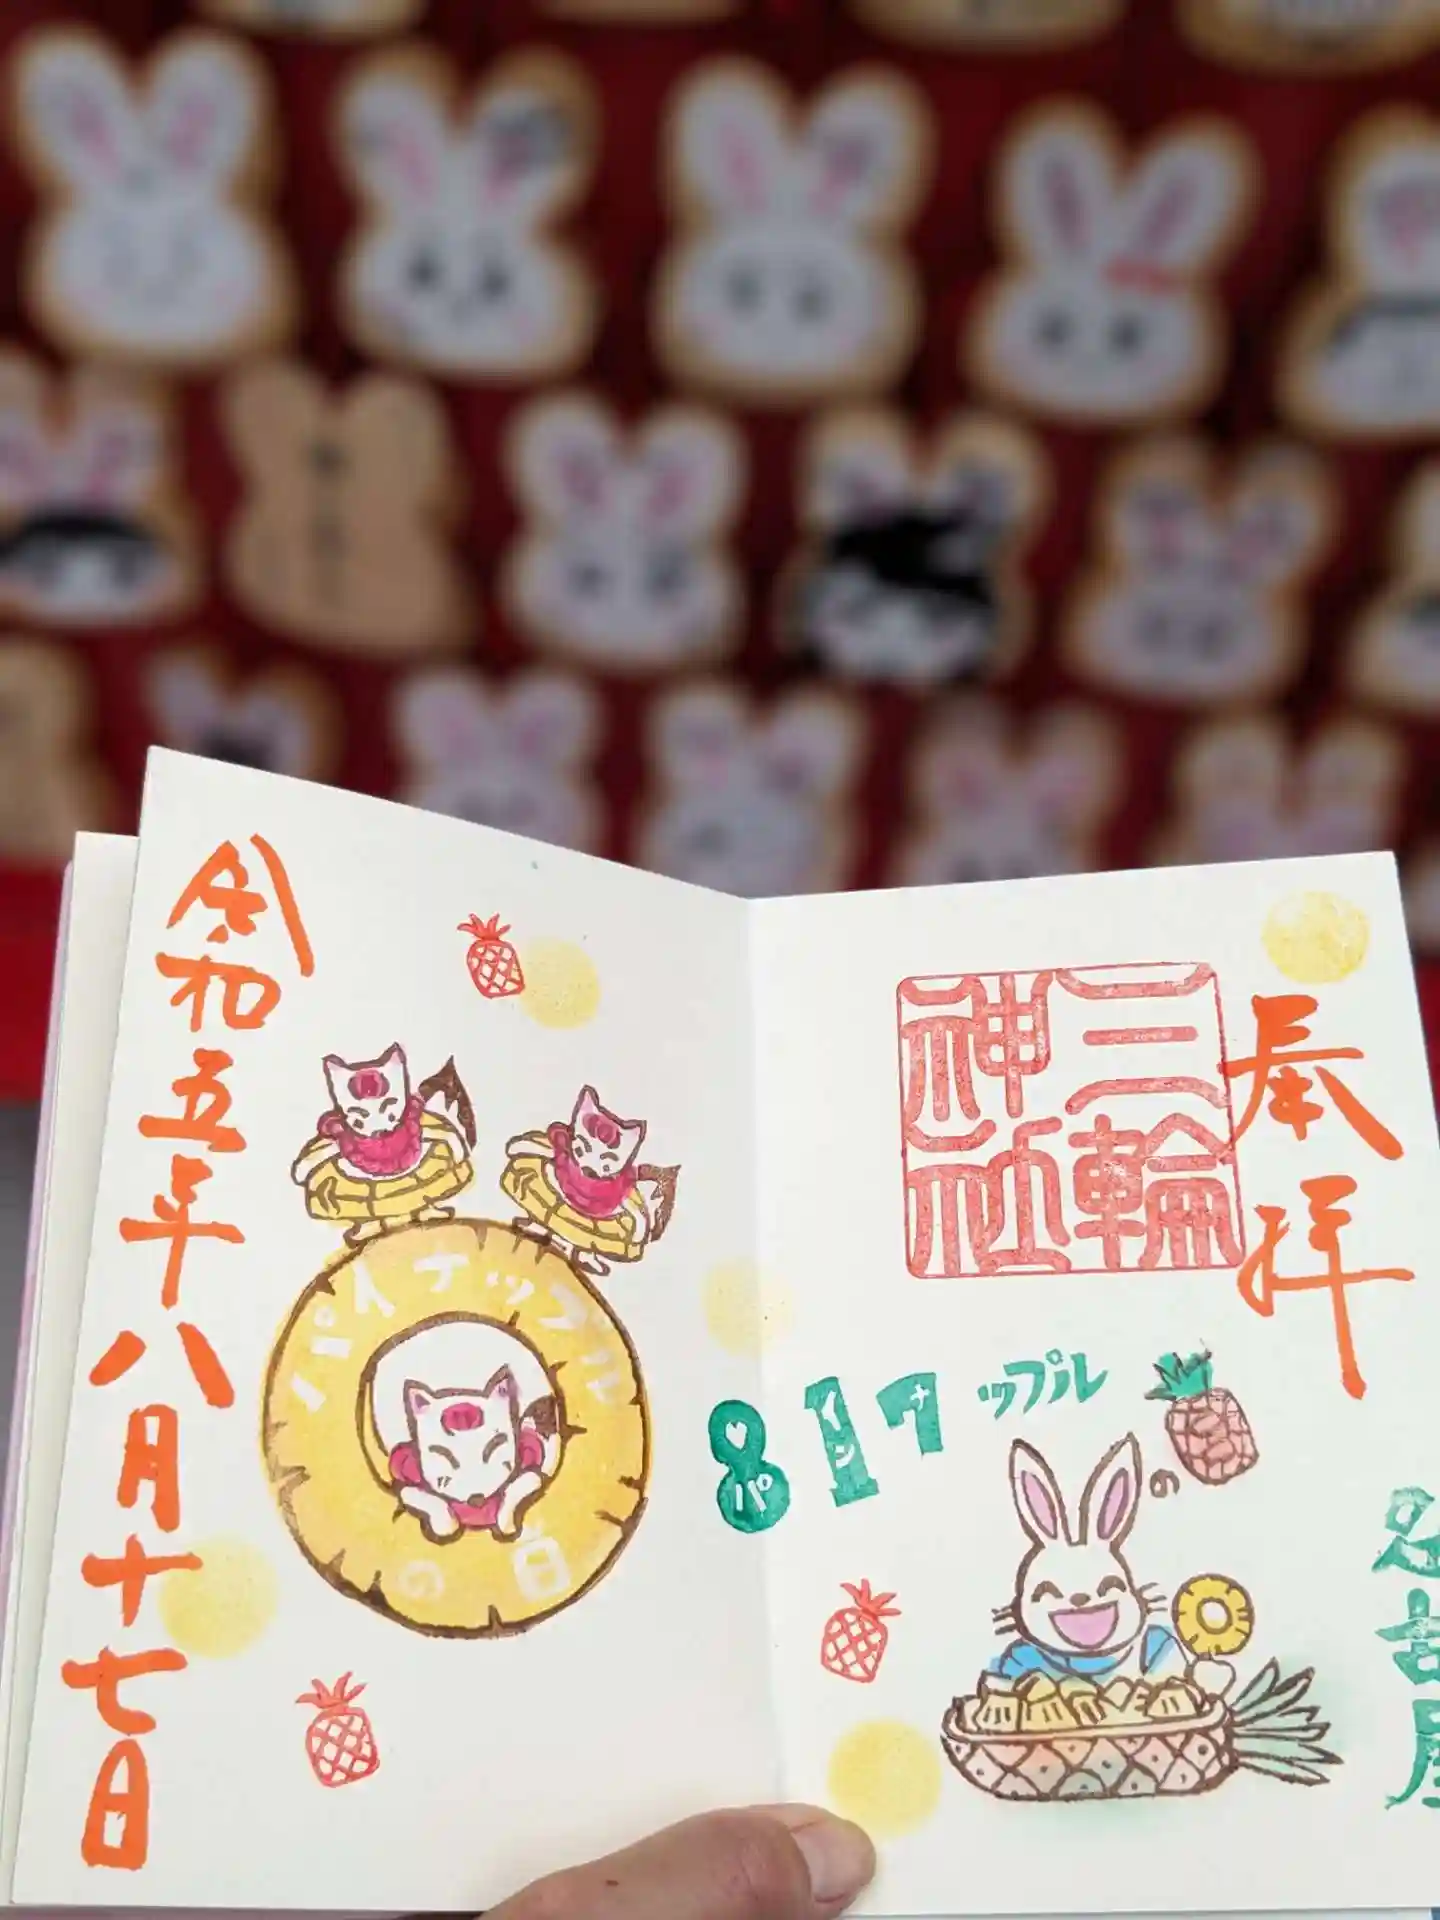 奉拝
三輪
神社
名古屋
817
パインナップル
の
令和五年八月十七日
パイナップル
の日